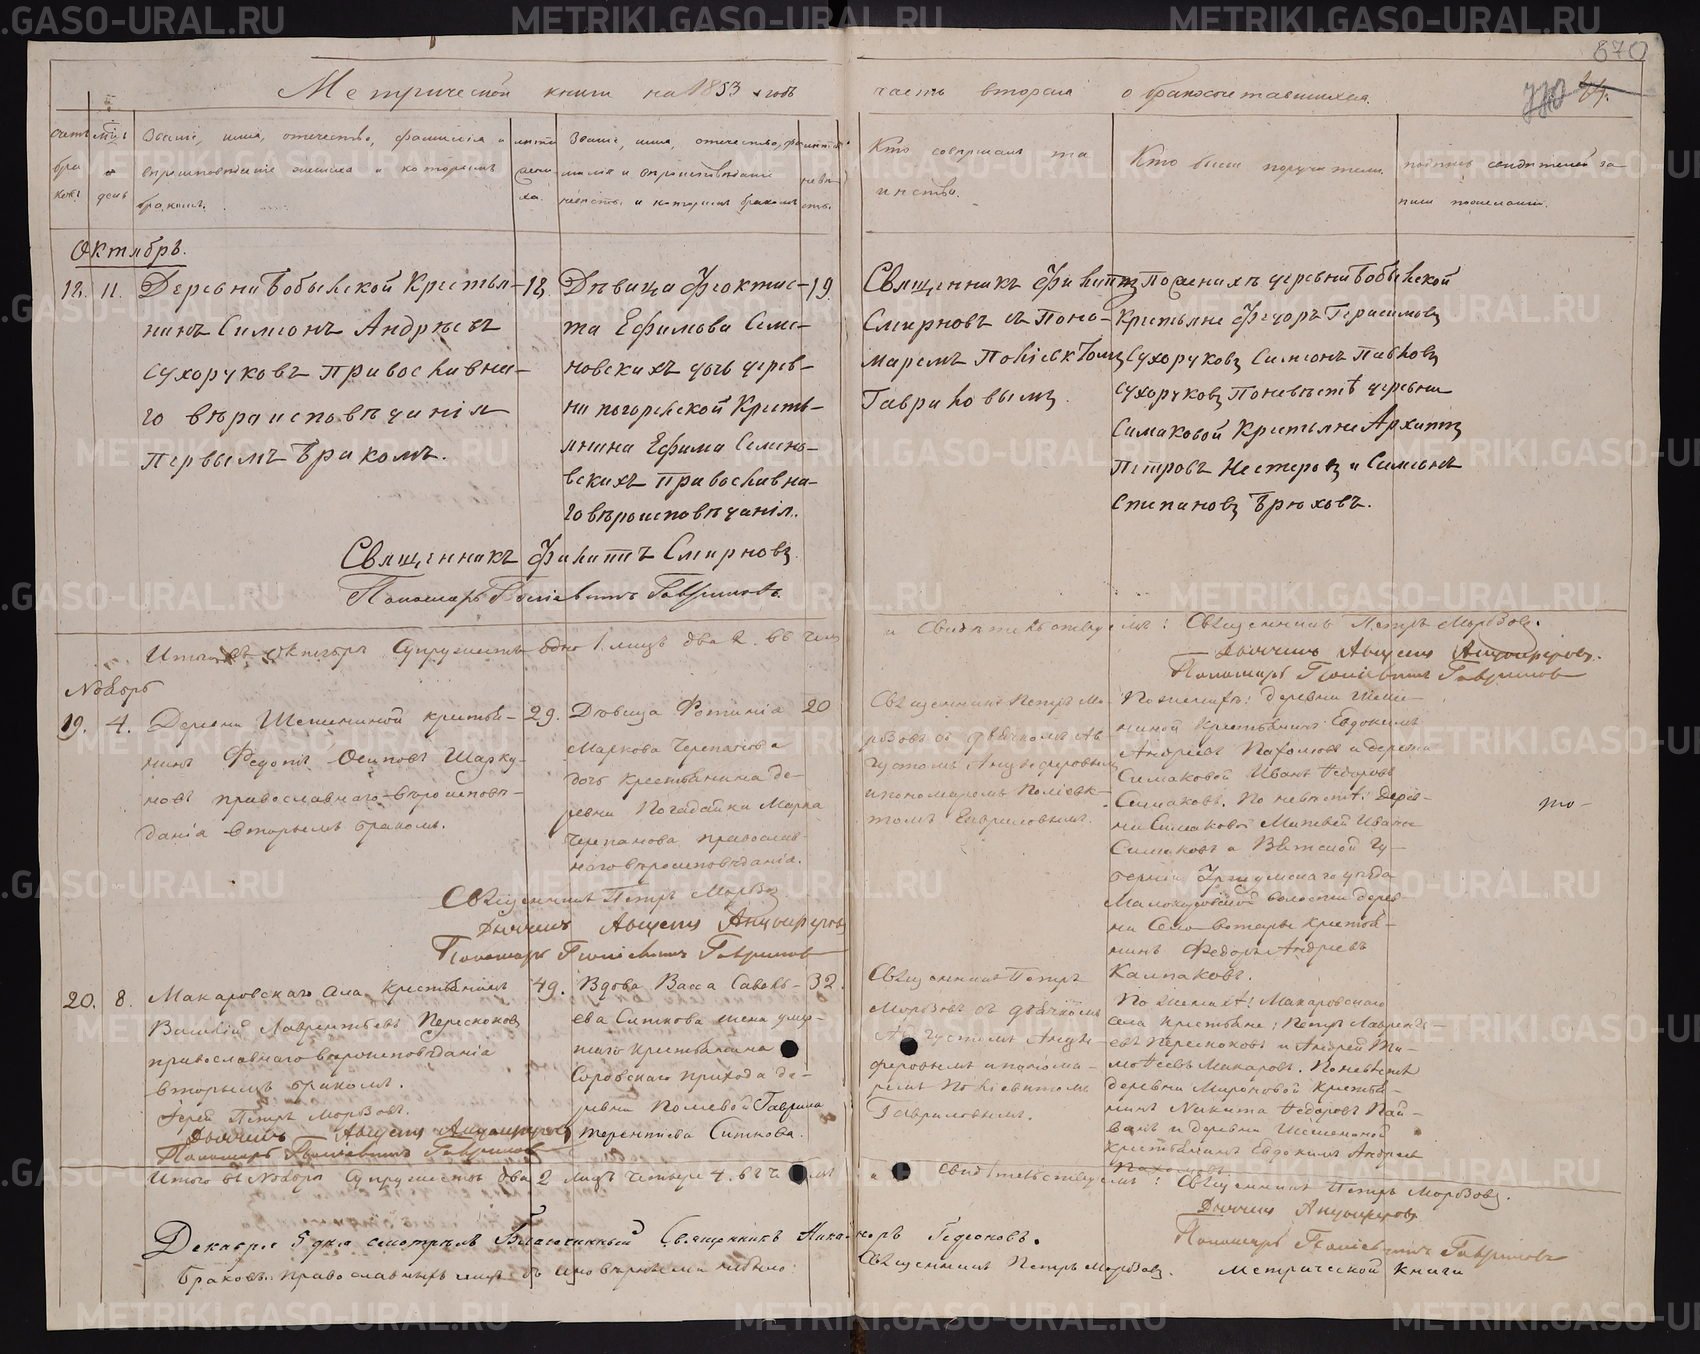 870
Метрической книги на 1853 годъ
часть вторая о бракосочетавшихся.
Счетъ браковъ
мцъ и день
Званіе, имя, отечество, фамилія и вѣроисповѣданіе жениха и которымъ бракомъ.
лѣта жениха.
Званіе, имя, отечество, фамилія и вѣроисповѣданіе невѣсты и которымъ бракомъ
лѣта невѣсты.
Кто совершалъ таинство.
Кто были поручители.
подпись свидѣтелей записи по желанію.
Октябрь.
18. 11.
Деревни Бобыльской Крестья-
нинъ Симіонъ Андрѣевъ
Сухоруковъ православна-
го вѣраисповѣданія
первымъ бракомъ.
18.
Дѣвица Феоктис-
та Ефимова Семе-
новскихъ дочь дерев-
ни погорельской Кресть-
янина Ефима Семено-
вскихъ православна-
го вѣроисповѣданія.
19.
Священникъ Филиппъ
Смирновъ съ Поно-
маремъ Поліевктомъ
Гавриловымъ.
По женихѣ деревни Бобыльской
Крестьяне Федоръ Герасимовъ
Сухоруковъ Симіонъ Павловъ
Сухоруковъ По невѣстѣ деревни
Симаковой Крестьяне Архиппъ
Петровъ Нестеровъ и Симіонъ
Степановъ Брюховъ.
Священникъ Филиппъ Смирновъ
Пономарь Поліевктъ Гавриловъ.
Итого въ октябрѣ Супружествъ одно 1. лицъ два 2. въ чемъ
и Свидѣтельствуемъ: Священникъ Петръ Морозовъ.
Дьячекъ Августъ Анциферовъ.
Пономарь Поліевктъ Гавриловъ
Ноябрь
19. 4.
Деревни Шешениной крестья-
нинъ Федотъ Осиповъ Шарку-
новъ православнаго вѣроисповѣ-
данія вторымъ бракомъ.
29.
Дѣвица Фотинія
Маркова Черепанова
дочь крестьянина де-
ревни Погадайки Марка
Черепанова православ-
наго вѣроисповѣданія.
20
Священникъ Петръ Мо-
розовъ съ дьячкомъ Ав-
густомъ Анциферовымъ
и пономаремъ Поліевк-
томъ Гавриловымъ.
По женихѣ: деревни Шеше-
ниной Крестьянинъ Евдокимъ
Андреевъ Пахомовъ и деревни
Симаковой Иванъ Федоровъ
Симаковъ. По невѣстѣ: Дерев-
ни Симаковой Матвей Ивановъ
Симаковъ и Вятской Гу-
берніи Уржумскаго уѣзда
волости дерев-
ни крестья-
нинъ Федоръ Андреевъ
Калпаковъ.
Священникъ Петръ Морозовъ
Дьячекъ Августъ Анциферовъ
Пономарь Поліевктъ Гавриловъ
20. 8.
Макаровскаго села Крестьянинъ
Василій Лаврентьевъ Перескоковъ
православнаго вѣроисповѣданія
вторымъ бракомъ.
Іерей Петръ Морозовъ.
Дьячекъ Августъ Анциферовъ
Пономарь Поліевктъ Гавриловъ
49.
Вдова Васса Савель-
ева Ситкова жена умер-
шаго крестьянина
Соровскаго прихода де-
ревни Полевой Гаврила
терентиева Ситкова.
32.
Священникъ Петръ
Морозовъ съ дьячкомъ
Августомъ Анци-
феровымъ и понома-
ремъ Поліевктомъ
Гавриловымъ.
По женихѣ: Макаровскаго
села крестьяне: Петръ Лавренть-
евъ Перескоковъ и Андрей Ти-
мофеевъ Макаровъ. По невѣстѣ
деревни Мироновой Крестья-
нинъ Никита Федоровъ Пай-
винъ и деревни Шешениной
крестьянинъ Евдокимъ Андреевъ
Пахомовъ
Итого въ Ноябрѣ Супружествъ два 2 лицъ четыре 4. въ чемъ
и свидѣтельствуемъ: Священникъ Петръ Морозовъ.
Дьячекъ Анциферовъ
Пономарь Поліевктъ Гавриловъ
Декабря 5 дня смотрѣлъ Благочинный Священникъ Никаноръ Гедеоновъ.
Браковъ православныхъ лицъ съ иновѣрными не было:
Священникъ Петръ Морозовъ. метрической книги
METRIKI.GASO-URAL.RU